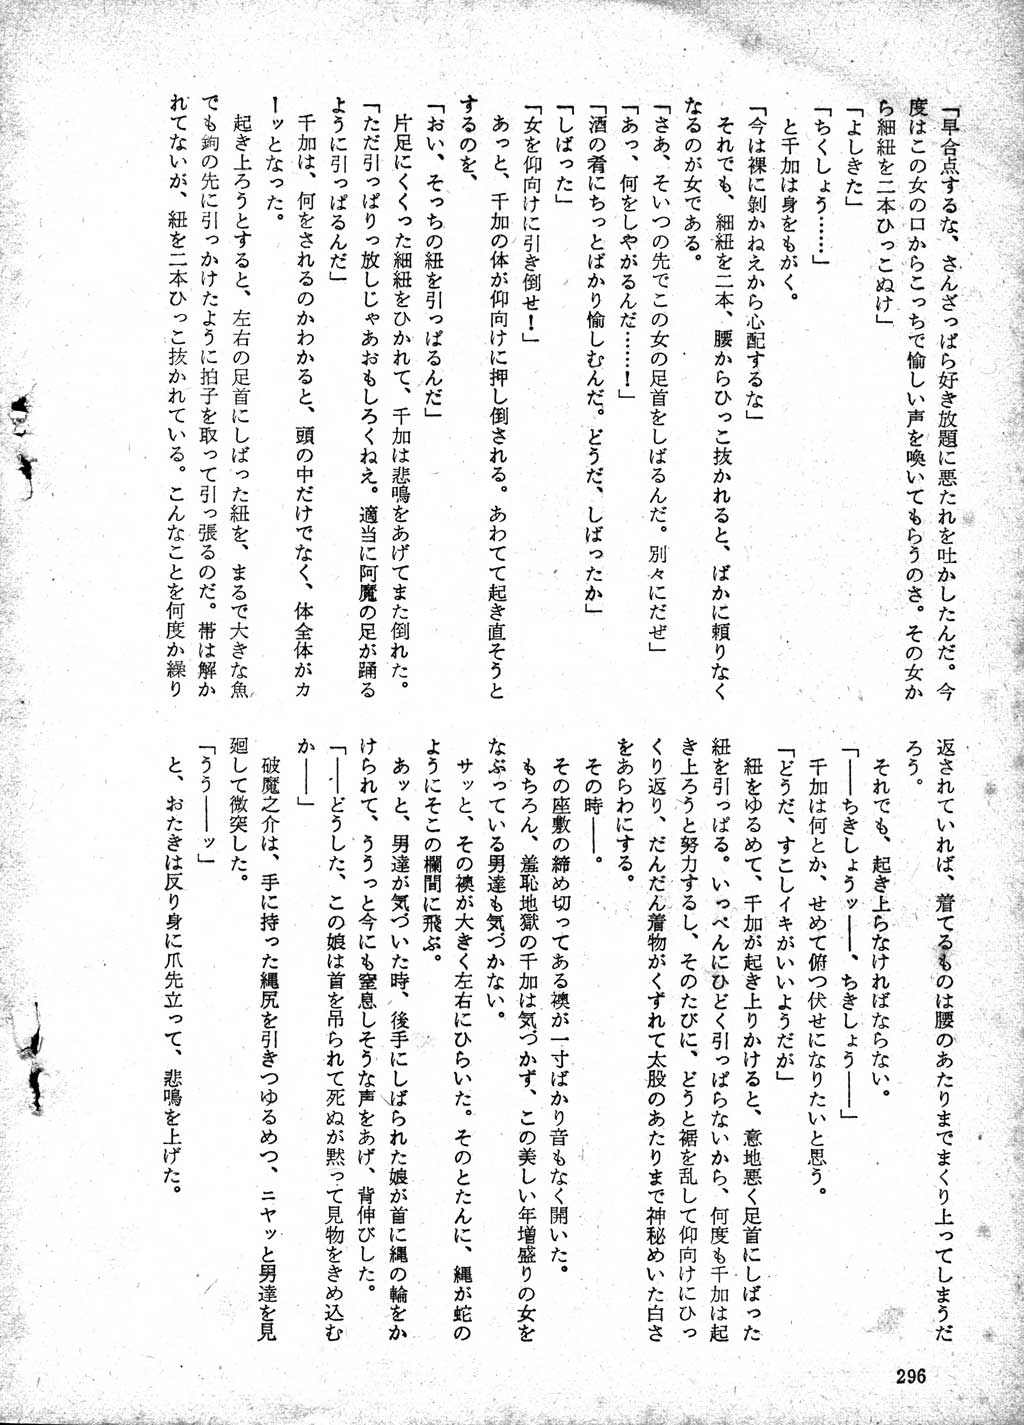 「早合点するな、さんざっぱら好き放題に悪たれを吐かしたんだ。今
度はこの女の口からこっちで愉しい声を喚いてもらうのさ。その女か
ら細紐を二本ひっこぬけ」
「よしきた」
「ちくしょう……」
と千加は身をもがく。
「今は裸に剝かねえから心配するな」
それでも、細紐を二本、腰からひっこ抜かれると、ばかに頼りなく
なるのが女である。
「さあ、そいつの先でこの女の足首をしばるんだ。別々にだぜ」
「あっ、何をしやがるんだ……！」
「酒の肴にちっとばかり愉しむんだ。どうだ、しばったか」
「しばった」
「女を仰向けに引き倒せ！」
あっと、千加の体が仰向けに押し倒される。あわてて起き直そうと
するのを、
「おい、そっちの紐を引っぱるんだ」
片足にくくった細紐をひかれて、千加は悲鳴をあげてまた倒れた。
「ただ引っぱりっ放しじゃあおもしろくねえ。適当に阿魔の足が踊る
ように引っぱるんだ」
千加は、何をされるのかわかると、頭の中だけでなく、体全体がカ
ーッとなった。
起き上ろうとすると、左右の足首にしばった紐を、まるで大きな魚
でも鉤の先に引っかけたように拍子を取って引っ張るのだ。帯は解か
れてないが、紐を二本ひっこ抜かれている。こんなことを何度か繰り
返されていれば、着てるものは腰のあたりまでまくり上ってしまうだ
ろう。
それでも、起き上らなければならない。
「――ちきしょうッ――、ちきしょう――」
千加は何とか、せめて俯つ伏せになりたいと思う。
「どうだ、すこしイキがいいようだが」
紐をゆるめて、千加が起き上りかけると、意地悪く足首にしばった
紐を引っぱる。いっぺんにひどく引っぱらないから、何度も千加は起
き上ろうと努力するし、そのたびに、どうと裾を乱して仰向けにひっ
くり返り、だんだん着物がくずれて太股のあたりまで神秘めいた白さ
をあらわにする。
その時――。
その座敷の締め切ってある襖が一寸ばかり音もなく開いた。
もちろん、羞恥地獄の千加は気づかず、この美しい年増盛りの女を
なぶっている男達も気づかない。
サッと、その襖が大きく左右にひらいた。そのとたんに、縄が蛇の
ようにそこの欄間に飛ぶ。
あッと、男達が気づいた時、後手にしばられた娘が首に縄の輪をか
けられて、ううっと今にも窒息しそうな声をあげ、背伸びした。
「――どうした、この娘は首を吊られて死ぬが黙って見物をきめ込む
か――」
破魔之介は、手に持った縄尻を引きつゆるめつ、ニヤッと男達を見
廻して微突した。
「うう――ッ」
と、おたきは反り身に爪先立って、悲鳴を上げた。
296